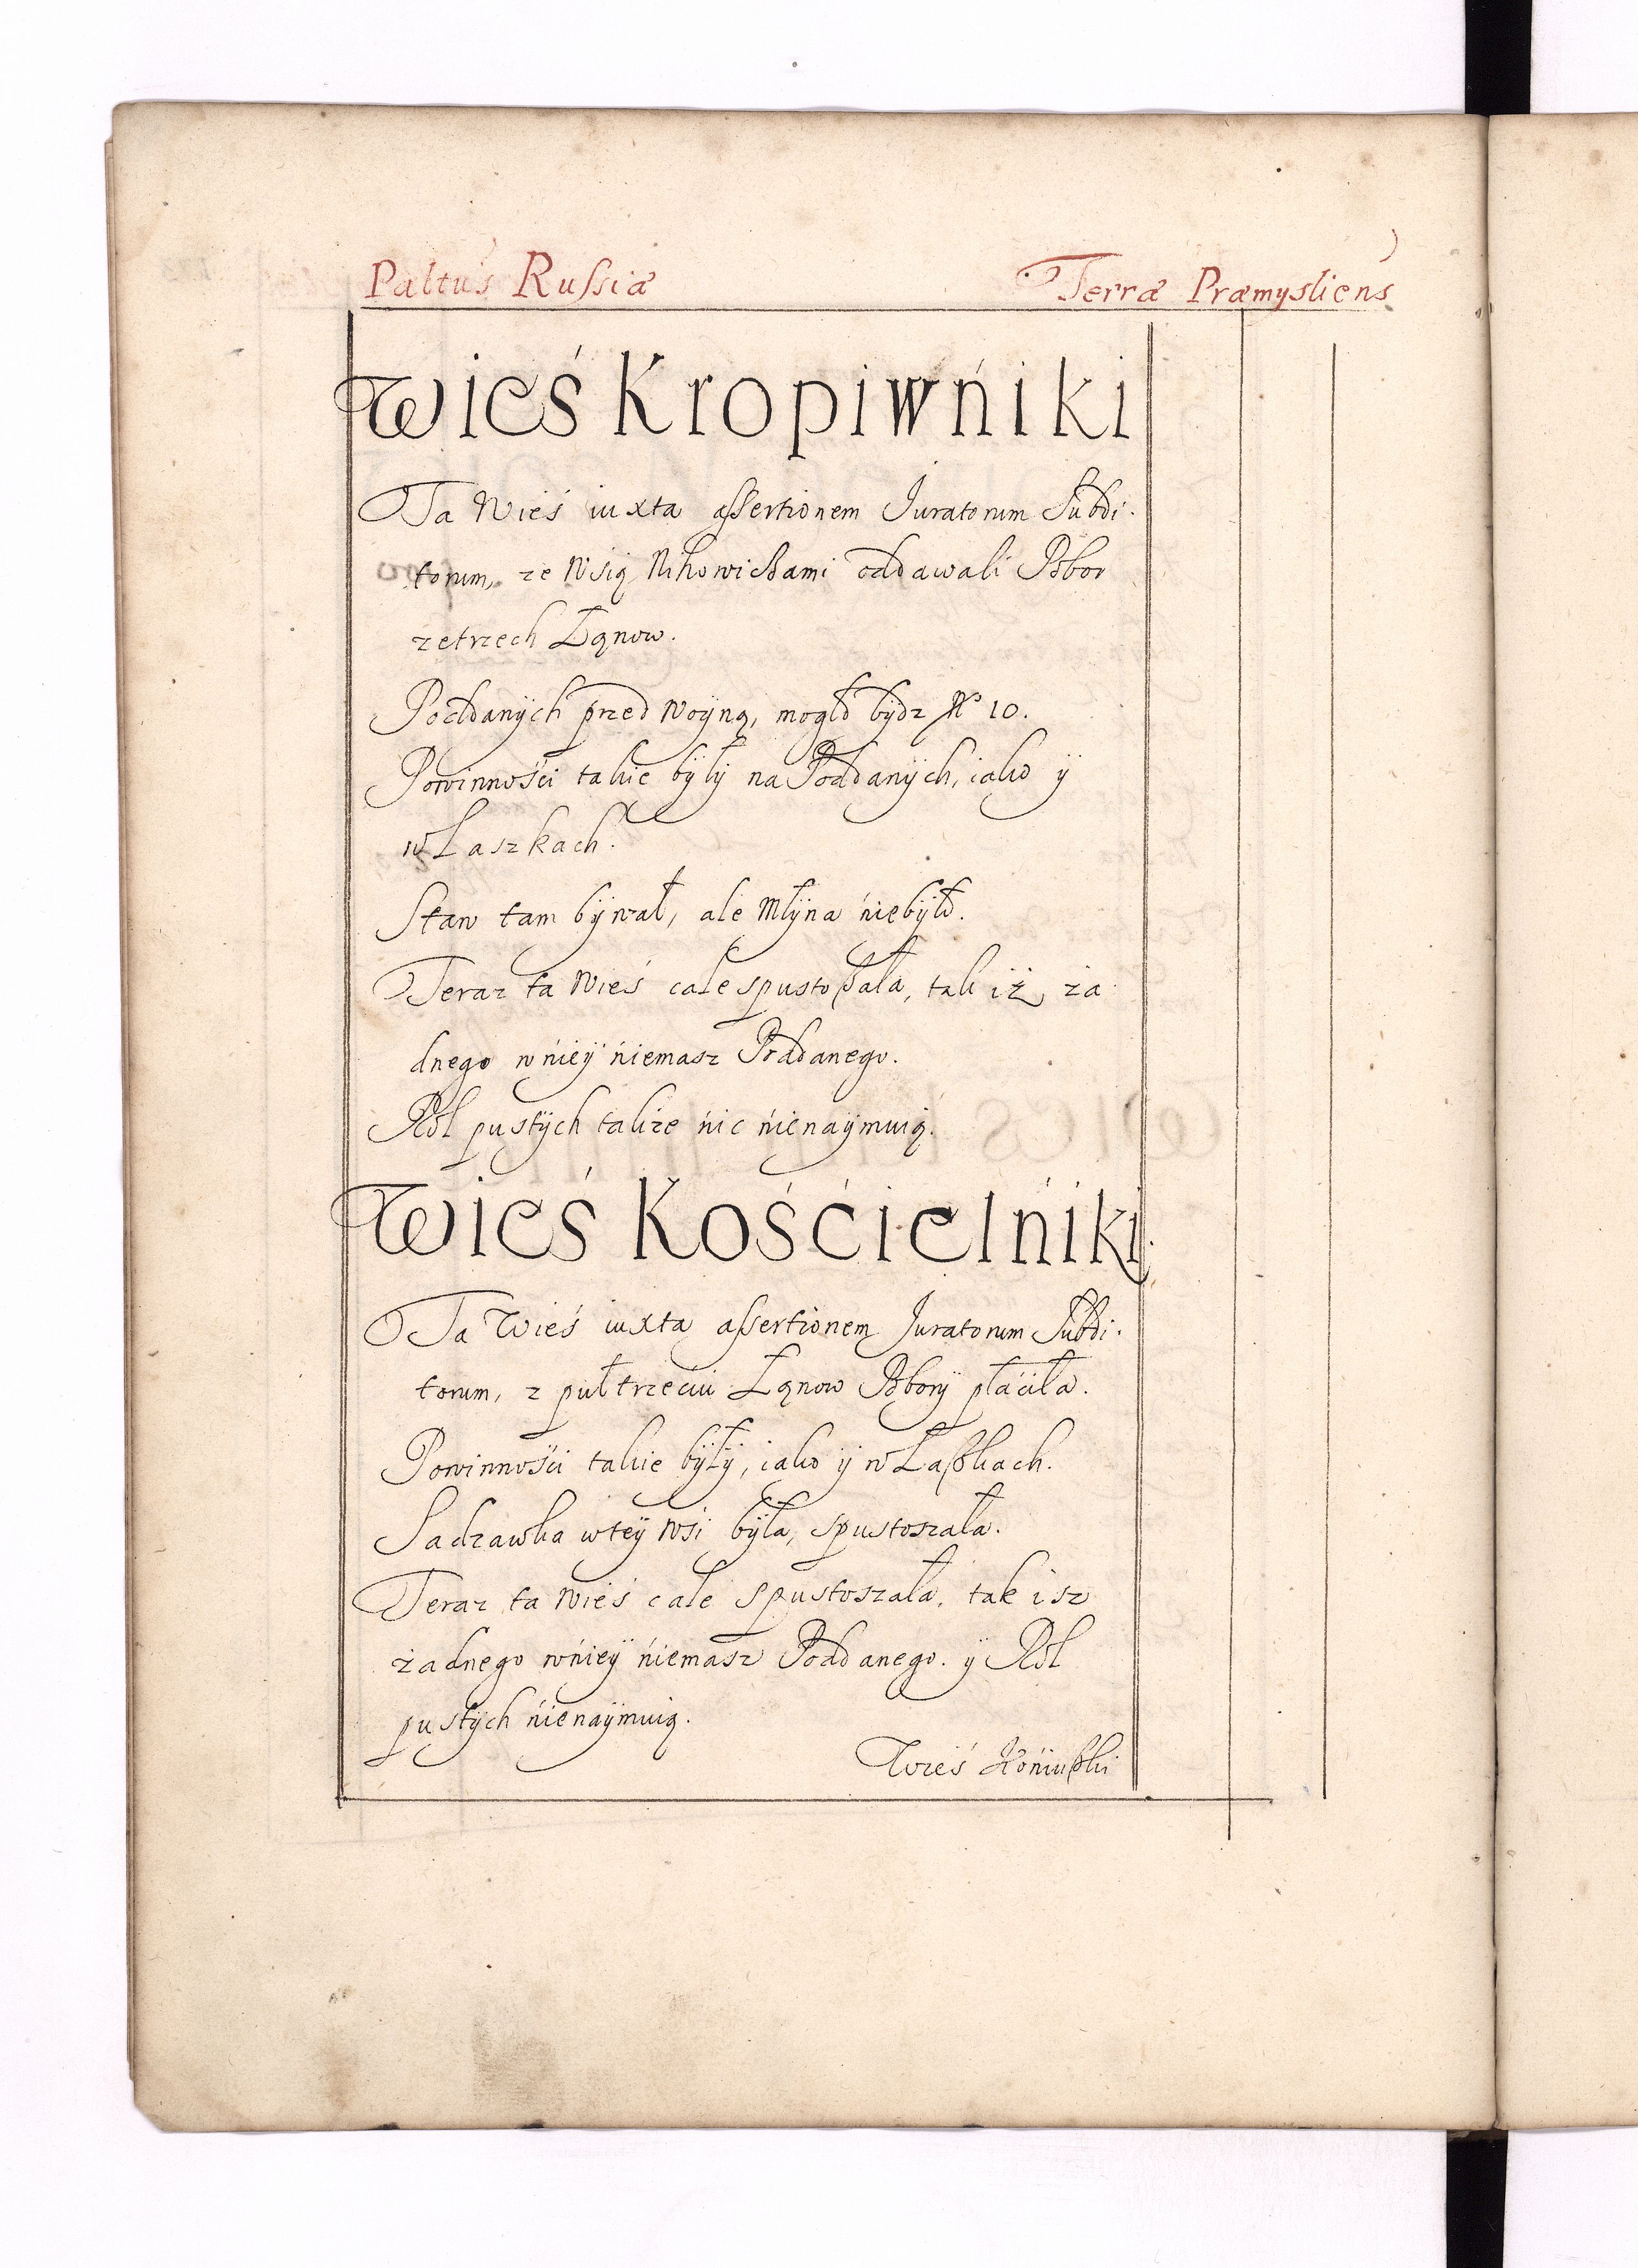 Paltus Russiæ Terræ Præmysliens
Wieś Kropiwńiki
Ta Wieś iuxta assertionem Juratorum Subdi-
torum, ze Wsią oddawali Pobor
ze trzech Łąnow.
Poddanÿch przed Woÿną, mogło bÿdz No 10.
Powinnośći takie bÿłÿ na Poddanÿch, iako ÿ
w Laszkach.
Staw tam bÿwał, ale Młÿna ńiebÿło.
Teraz ta Wieś cale spustoßała, tak iż ża-
dnego wńieÿ ńiemasz Poddanego.
Rol pustÿch takze ńic ńienaÿmuią.
Wieś Kośćielńiki.
Ta Wieś iuxta assertionem Juratorum Subdi-
torum, z puł trzećiu Łąnow Poborÿ płaćiła.
Powinnośći takie bÿłÿ, iako ÿ w Laßkach.
Sadzawka wteÿ Wsi bÿła, spustoszała.
Teraz ta Wieś cale spustoszała, tak isz
żadnego wńieÿ ńiemasz Poddanego. ÿ Rol
pustÿch ńienaÿmuią.
Wieś Końiußki